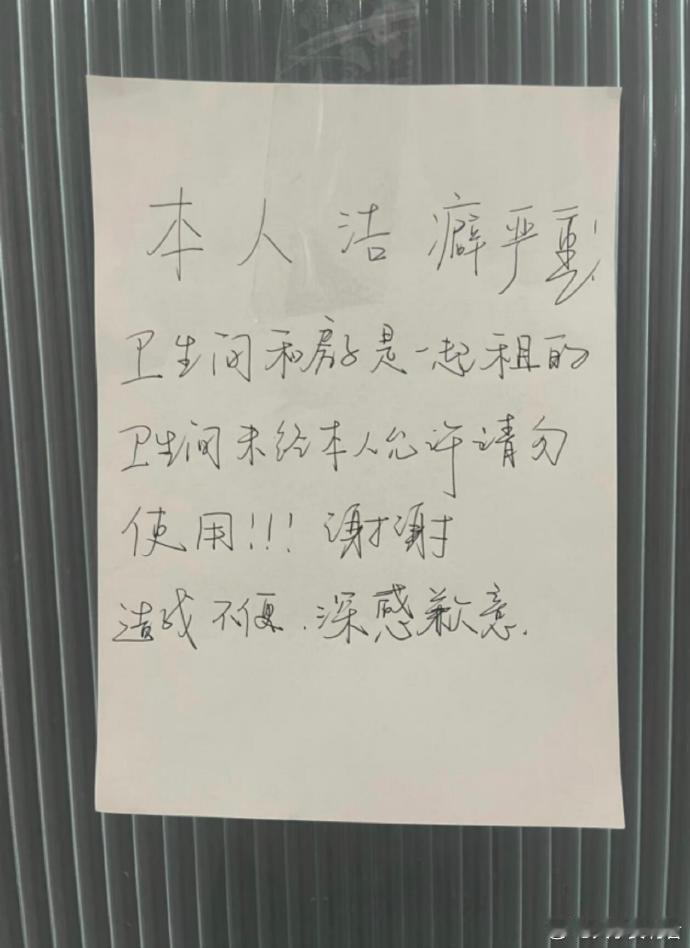 本人洁癖严重!
卫生间和房子是一起租的
卫生间未经本人允许请勿
使用!!! 谢谢
造成不便.深感歉意.